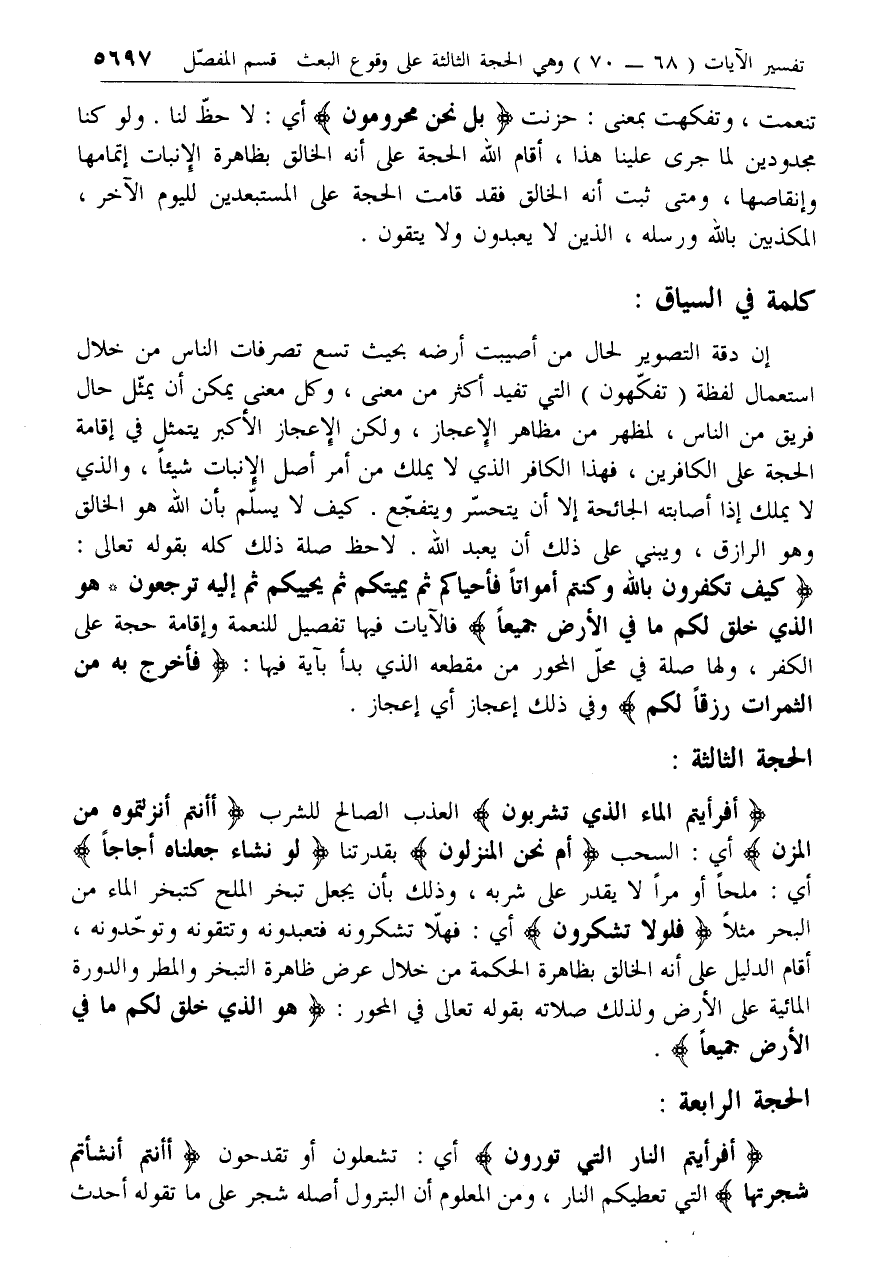 تفسير الآيات ( ٦٨ ــ ٧٠ ) وهي الحجة الثالثة على وقوع البعث قسم المفصّل ٥٦٩٧
تنعمت ، وتفكهت بمعنى : حزنت ﴿ بل نحن محرومون ﴾ أي : لا حظّ لنا . ولو كنا
مجدودين لما جرى علينا هذا ، أقام الله الحجة على أنه الخالق بظاهرة الإنبات إتمامها
وإنقاصها ، ومتى ثبت أنه الخالق فقد قامت الحجة على المستبعدين لليوم الآخر ،
المكذبين بالله ورسله ، الذين لا يعبدون ولا يتقون .
كلمة في السياق :
إن دقة التصوير لحال من أصيبت أرضه بحيث تسع تصرفات الناس من خلال
استعمال لفظة ( تفكّهون ) التي تفيد أكثر من معنى ، وكل معنى يمكن أن يمثّل حال
فريق من الناس ، لمظهر من مظاهر الإعجاز ، ولكن الإعجاز الأكبر يتمثل في إقامة
الحجة على الكافرين ، فهذا الكافر الذي لا يملك من أمر أصل الإنبات شيئاً ، والذي
لا يملك إذا أصابته الجائحة إلا أن يتحسّر ويتفجّع . كيف لا يسلّم بأن الله هو الخالق
وهو الرازق ، ويبني على ذلك أن يعبد الله . لاحظ صلة ذلك كله بقوله تعالى :
﴿ كيف تكفرون بالله وكنتم أمواتاً فأحياكم ثم يميتكم ثم يحييكم ثم إليه ترجعون * هو
الذي خلق لكم ما في الأرض جميعاً ﴾ فالآيات فيها تفصيل للنعمة وإقامة حجة على
الكفر ، ولها صلة في محلّ المحور من مقطعه الذي بدأ بآية فيها : ﴿ فأخرج به من
الثمرات رزقاً لكم ﴾ وفي ذلك إعجاز أي إعجاز .
الحجة الثالثة :
﴿ أفرأيتم الماء الذي تشربون ﴾ العذب الصالح للشرب ﴿ أأنتم أنزلتموه من
المزن ﴾ أي : السحب ﴿ أم نحن المنزلون ﴾ بقدرتنا ﴿ لو نشاء جعلناه أجاجاً ﴾
أي : ملحاً أو مراً لا يقدر على شربه ، وذلك بأن يجعل تبخر الملح كتبخر الماء من
البحر مثلاً ﴿ فلولا تشكرون ﴾ أي : فهلّا تشكرونه فتعبدونه وتتقونه وتوحّدونه ،
أقام الدليل على أنه الخالق بظاهرة الحكمة من خلال عرض ظاهرة التبخر والمطر والدورة
المائية على الأرض ولذلك صلاته بقوله تعالى في المحور : ﴿ هو الذي خلق لكم ما في
الأرض جميعاً ﴾ .
الحجة الرابعة :
﴿ أفرأيتم النار التي تورون ﴾ أي : تشعلون أو تقدحون ﴿ أأنتم أنشأتم
شجرتها ﴾ التي تعطيكم النار ، ومن المعلوم أن البترول أصله شجر على ما تقوله أحدث